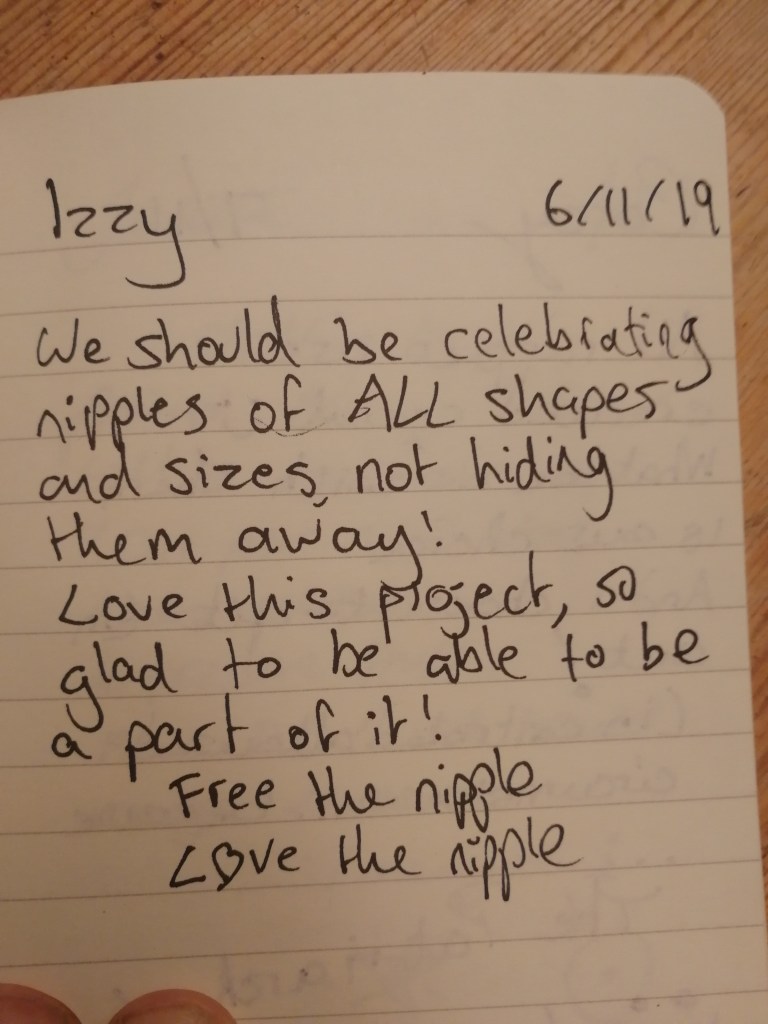 Izzy 6/11/19
We should be celebrating
nipples of ALL shapes
and sizes, not hiding
them away!
Love this project, so
glad to be able to be
a part of it!
Free the nipple
Love the nipple